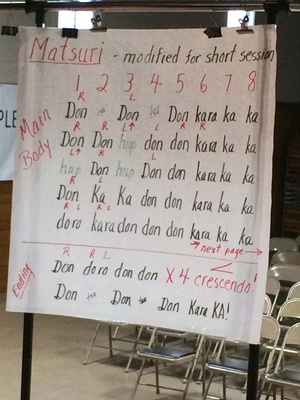 Matsuri - modified for short session
1 2 3 4 5 6 7 8
R L
Main Body
Don Don Don kara ka ka
R R L↑ L R R
Don Don hup don don kara ka ka
L↑ R L
hup Don hup Don don kara ka ka
R L
Don Ka Ka don don kara ka ka
R L R L
doro kara don don don kara ka ka
next page →
R R L
Ending
Don doro don don X 4 crescendo!
Don Don Don Kara KA!
PLE